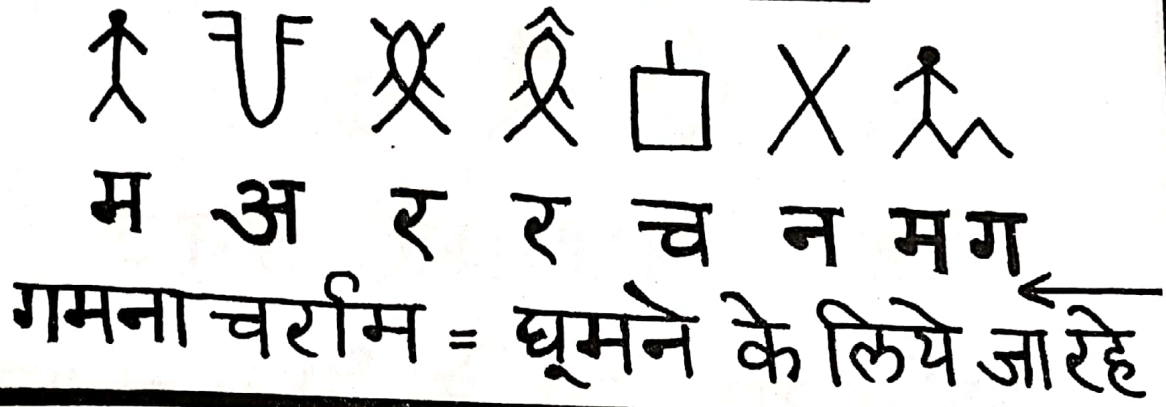 म अ र र च न म ग
गमना चर्राम = घूमने के लिये जा रहे